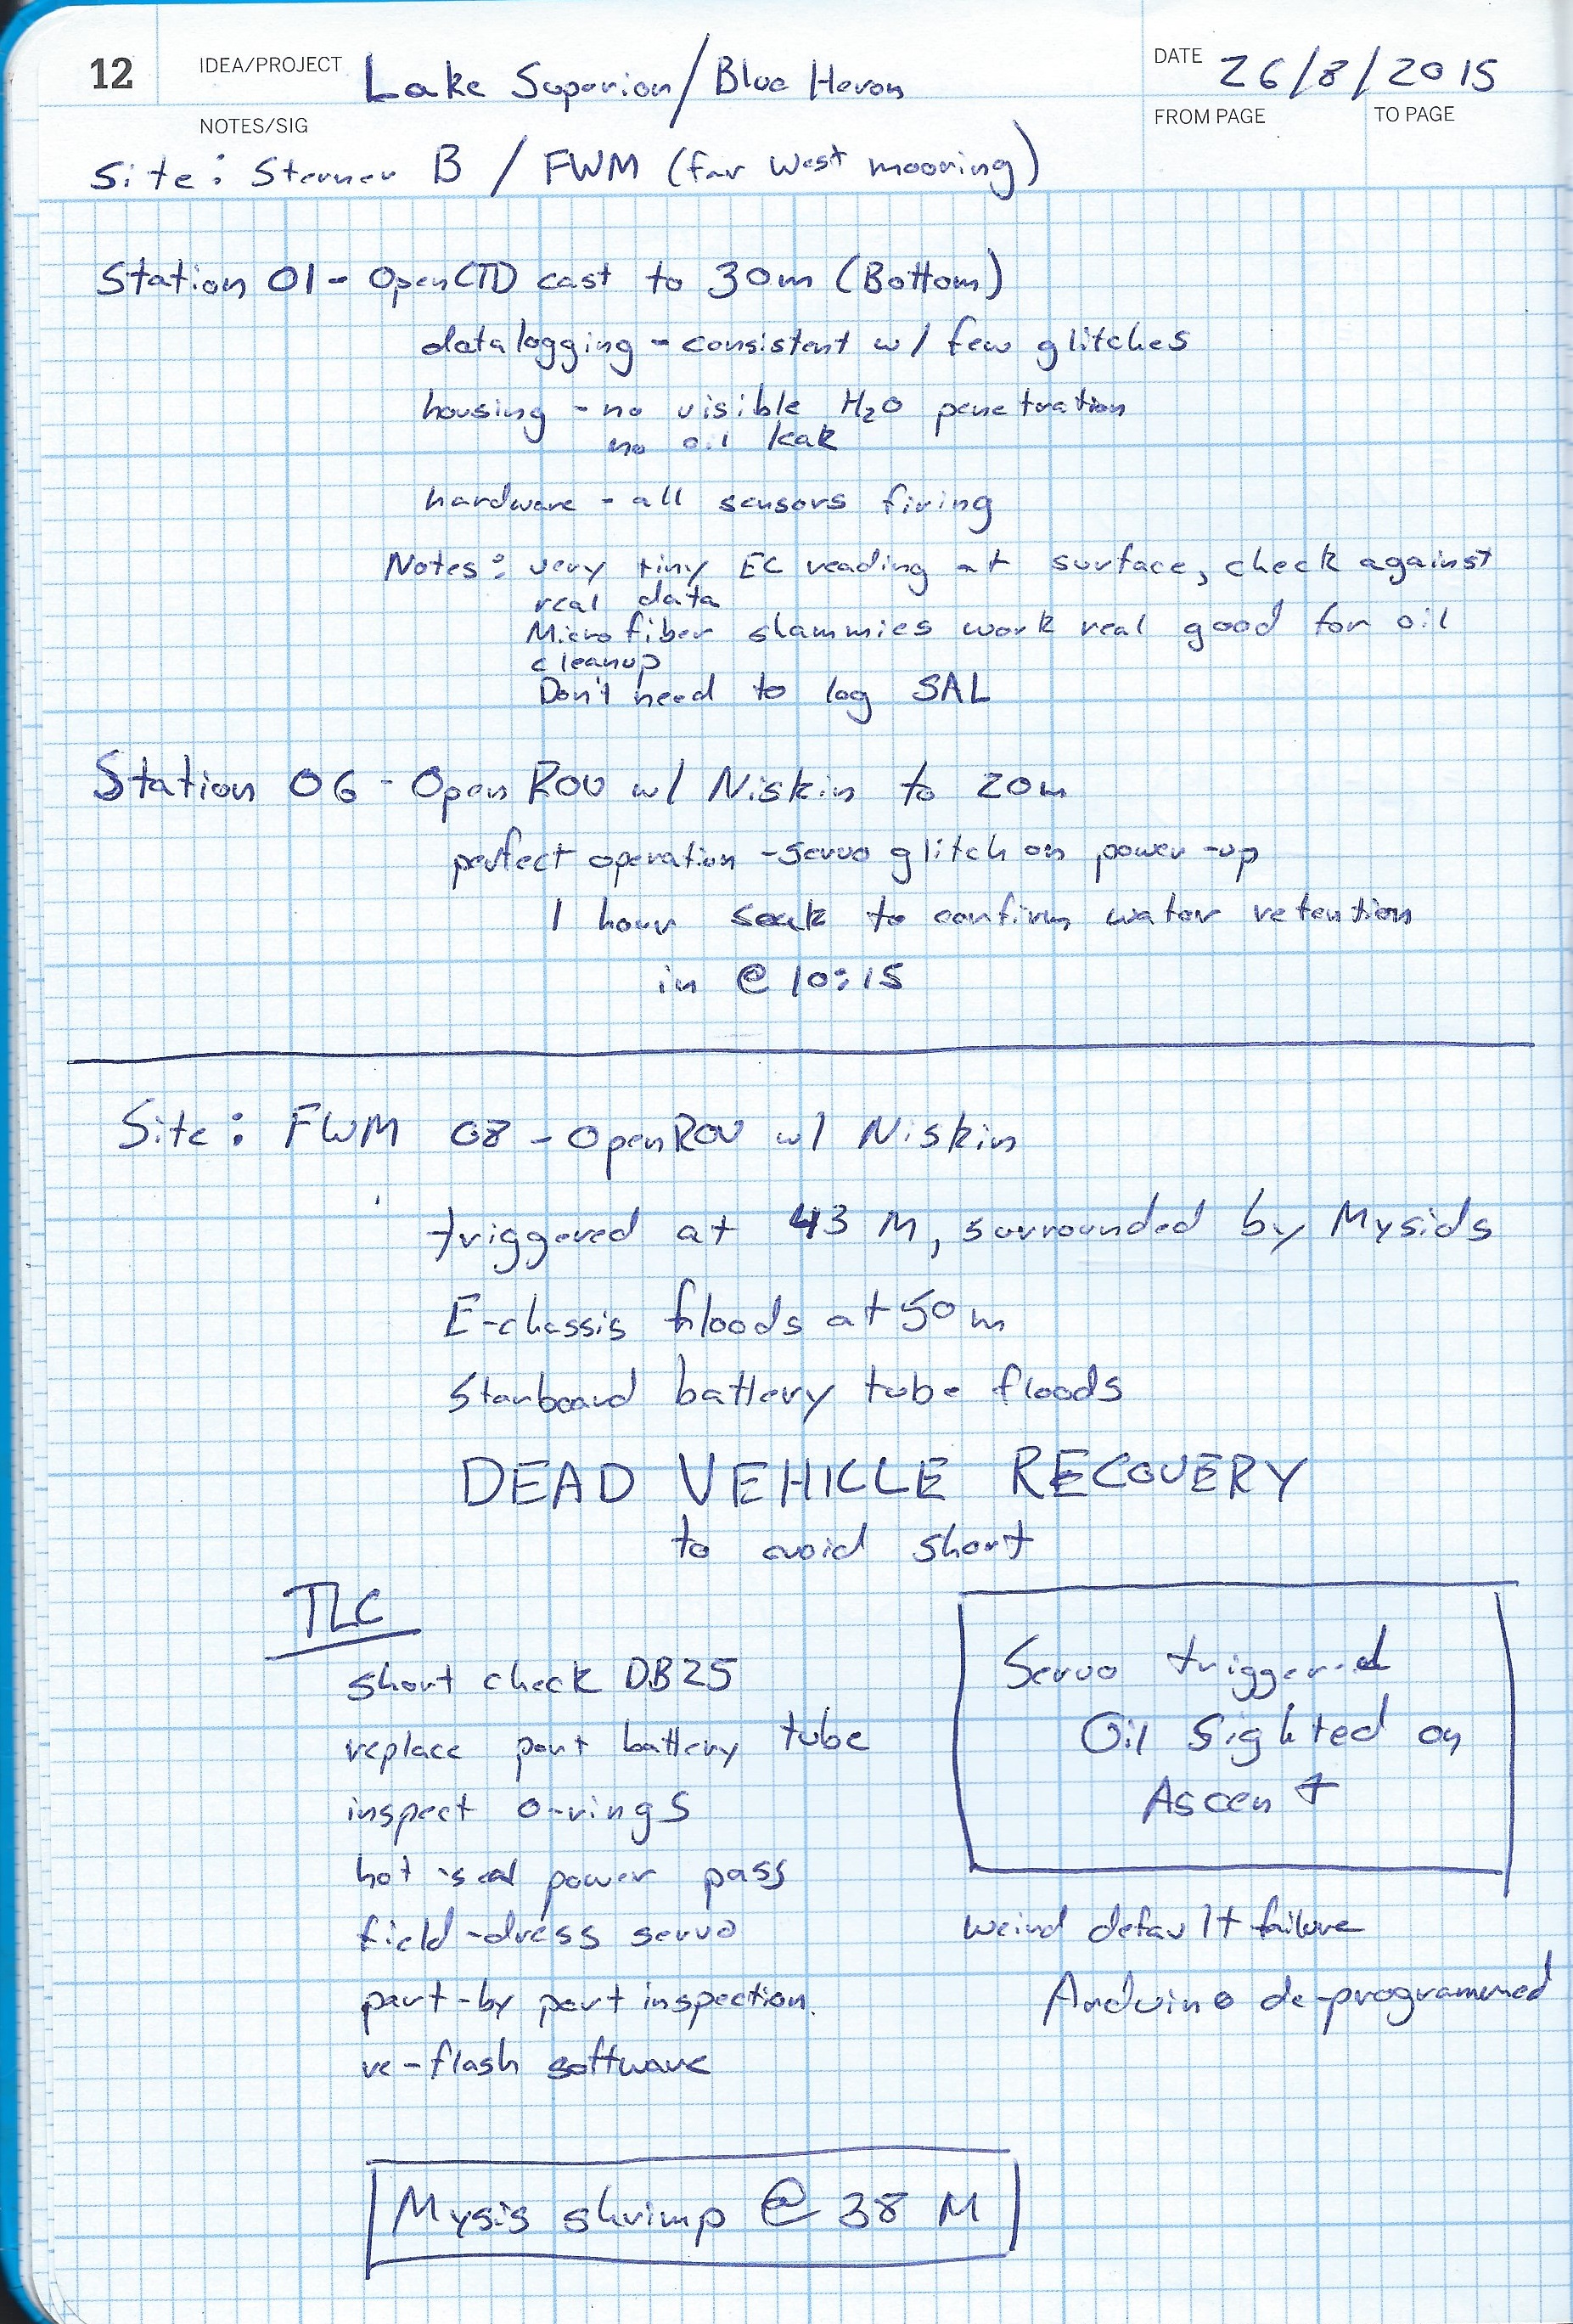 12 IDEA/PROJECT Lake Superior/Blue Heron DATE 26/8/2015
NOTES/SIG FROM PAGE TO PAGE
Site: Sterner B / FWM (far west mooring)
Station 01 - OpenCTD cast to 30m (Bottom)
datalogging - consistent w/ few glitches
housing - no visible H2O penetration
no oil leak
hardware - all sensors firing
Notes: very tiny EC reading at surface, check against
real data
Microfiber shammies work real good for oil
cleanup
Don't need to log SAL
Station 06 - OpenROV w/ Niskin to 20m
perfect operation - servo glitch on power-up
1 hour soak to confirm water retention
in @ 10:15
Site: FWM 08 - OpenROV w/ Niskin
triggered at 43 M, surrounded by Mysids
E-chassis floods at 50m
Starboard battery tube floods
DEAD VEHICLE RECOVERY
to avoid short
TLC
short check DB25
replace port battery tube
inspect o-rings
hot seal power pass
field-dress servo
part-by part inspection.
re-flash software
Servo triggered
Oil Sighted on
Ascent
weird default failure
Arduino de-programmed
Mysis shrimp @ 38 M